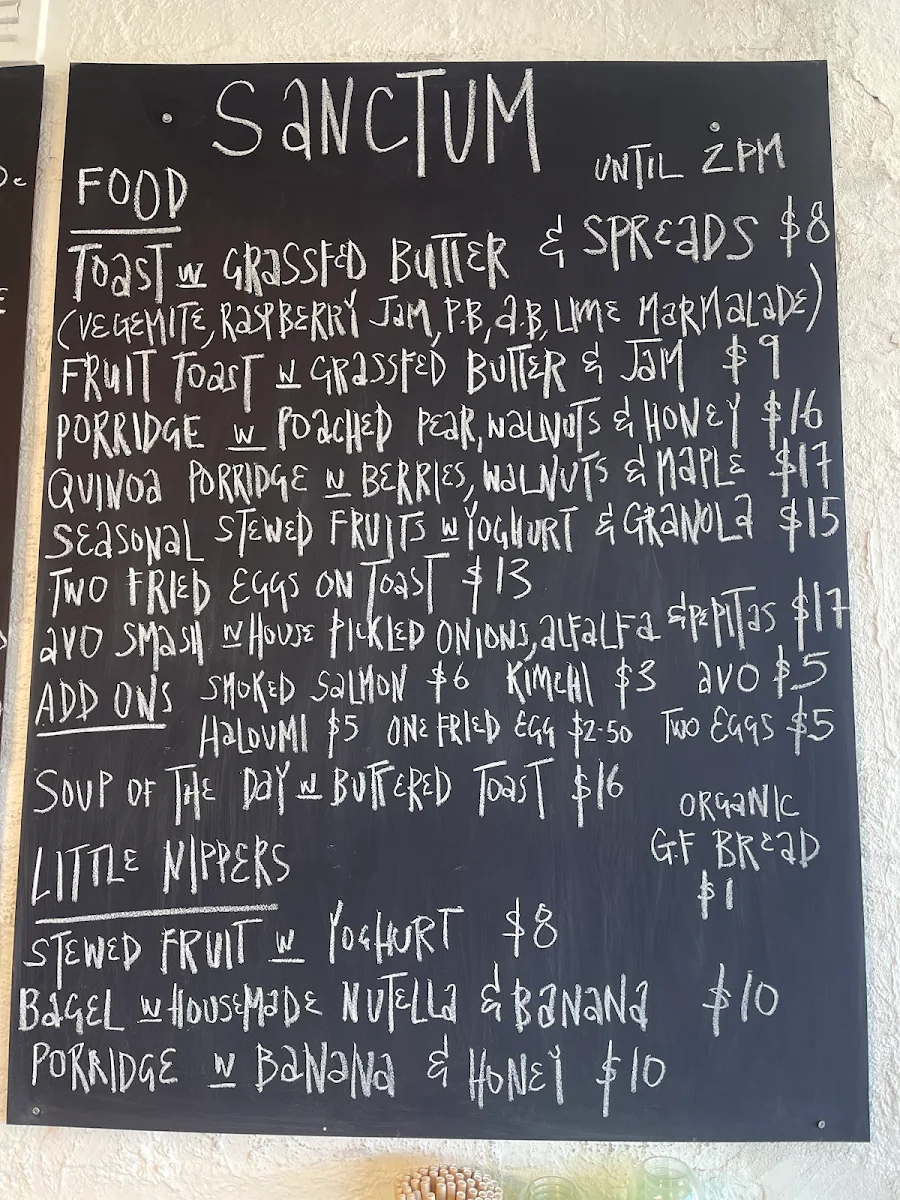 SANCTUM
UNTIL 2PM
FOOD
TOAST w GRASSFED BUTTER & SPREADS $8
(VEGEMITE, RASPBERRY JAM, P.B, A.B, LIME MARMALADE)
FRUIT TOAST w GRASSFED BUTTER & JAM $9
PORRIDGE w POACHED PEAR, WALNUTS & HONEY $16
QUINOA PORRIDGE w BERRIES, WALNUTS & MAPLE $17
SEASONAL STEWED FRUITS w YOGHURT & GRANOLA $15
TWO FRIED EGGS ON TOAST $13
AVO SMASH w HOUSE PICKLED ONIONS, ALFALFA & PEPITAS $17
ADD ONS SMOKED SALMON $6 KIMCHI $3 AVO $5
HALOUMI $5 ONE FRIED EGG $2.50 TWO EGGS $5
SOUP OF THE DAY w BUTTERED TOAST $16
ORGANIC
G.F BREAD
$1
LITTLE NIPPERS
STEWED FRUIT w YOGHURT $8
BAGEL w HOUSEMADE NUTELLA & BANANA $10
PORRIDGE w BANANA & HONEY $10